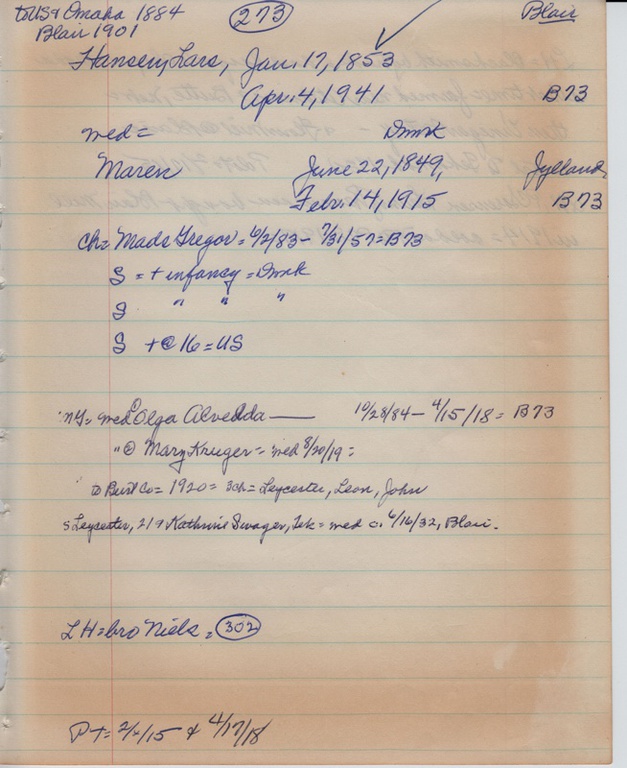 to US & Omaha 1884 273 Blair
Blair 1901
Hansen, Lars, Jan. 17, 1853
Apr. 4, 1941 B73
med = Dmrk
Maren June 22, 1849, Jylland
Febr. 14, 1915 B73
Ch = Mads Gregor = 6/2/83 - 7/31/57 = B73
S = + infancy = Dmrk
S " " "
S + @ 16 = US
MG = med Olga Alvedda — 10/28/84 - 4/15/18 = B73
" @ Mary Kruger = med 8/20/19 =
to Burt Co = 1920 = 3ch = Leycester, Leon, John
S Leycester, 21 & Kathrine Swager, Tek = med 6/16/32, Blair.
LH = bro Niels = 302
PT = 2/ /15 & 4/17/18